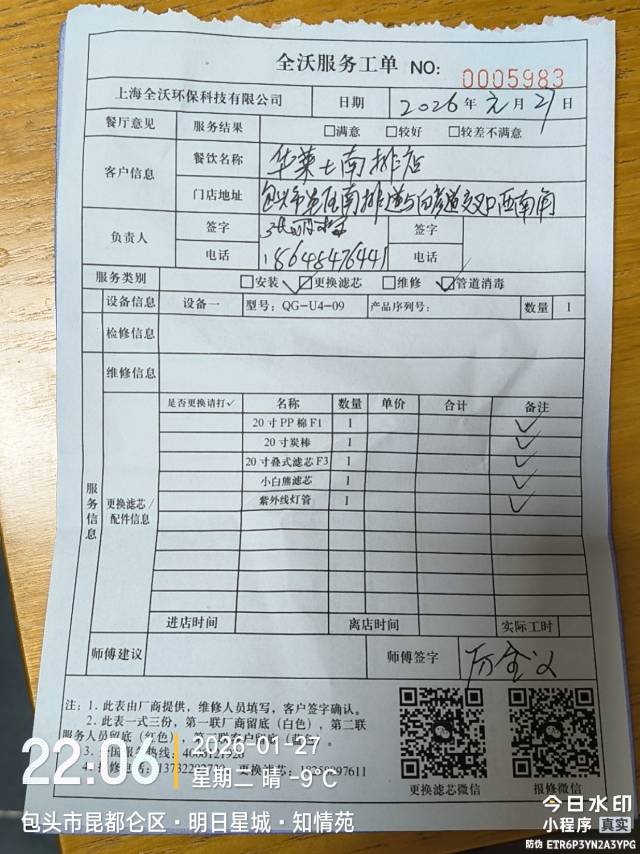 全沃服务工单 NO: 0005983
上海全沃环保科技有限公司 日期 2026年元月27日
餐厅意见 服务结果 □满意 □较好 □较差不满意
客户信息 餐饮名称 华莱士南排店
门店地址 包头市 南排道与 道交叉口西南角
负责人 签字 签字
电话 18648476441 电话
服务类别 □安装 ☑更换滤芯 □维修 ☑管道消毒
设备信息 设备一 型号: QG-U4-09 产品序列号: 数量 1
检修信息
维修信息
服务信息 更换滤芯/配件信息
是否更换请打✓ 名称 数量 单价 合计 备注
20寸PP棉F1 1 ✓
20寸炭棒 1 ✓
20寸叠式滤芯F3 1 ✓
小白熊滤芯 1 ✓
紫外线灯管 1 ✓
进店时间 离店时间 实际工时
师傅建议 师傅签字
注: 1. 此表由厂商提供，维修人员填写，客户签字确认。
2. 此表一式三份，第一联厂商留底（白色），第二联
服务人员留底（红色），第三联客户留底
3. 服务热线:
4. 更换滤芯:
更换滤芯微信 报修微信
22:06 2026-01-27
星期二 晴 -9℃
包头市昆都仑区·明日星城·知情苑
今日水印
小程序 真实
防伪 ETR6P3YN2A3YPG